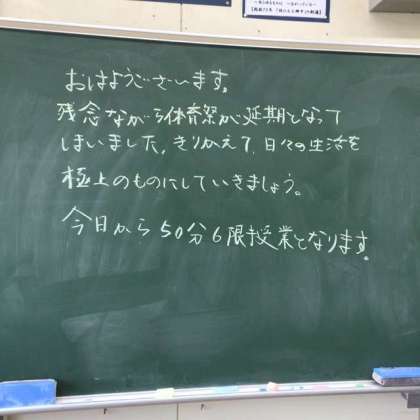 おはようございます。
残念ながら体育祭が延期となって
しまいました。きりかえて、日々の生活を
極上のものにしていきましょう。
今日から50分6限授業となります。